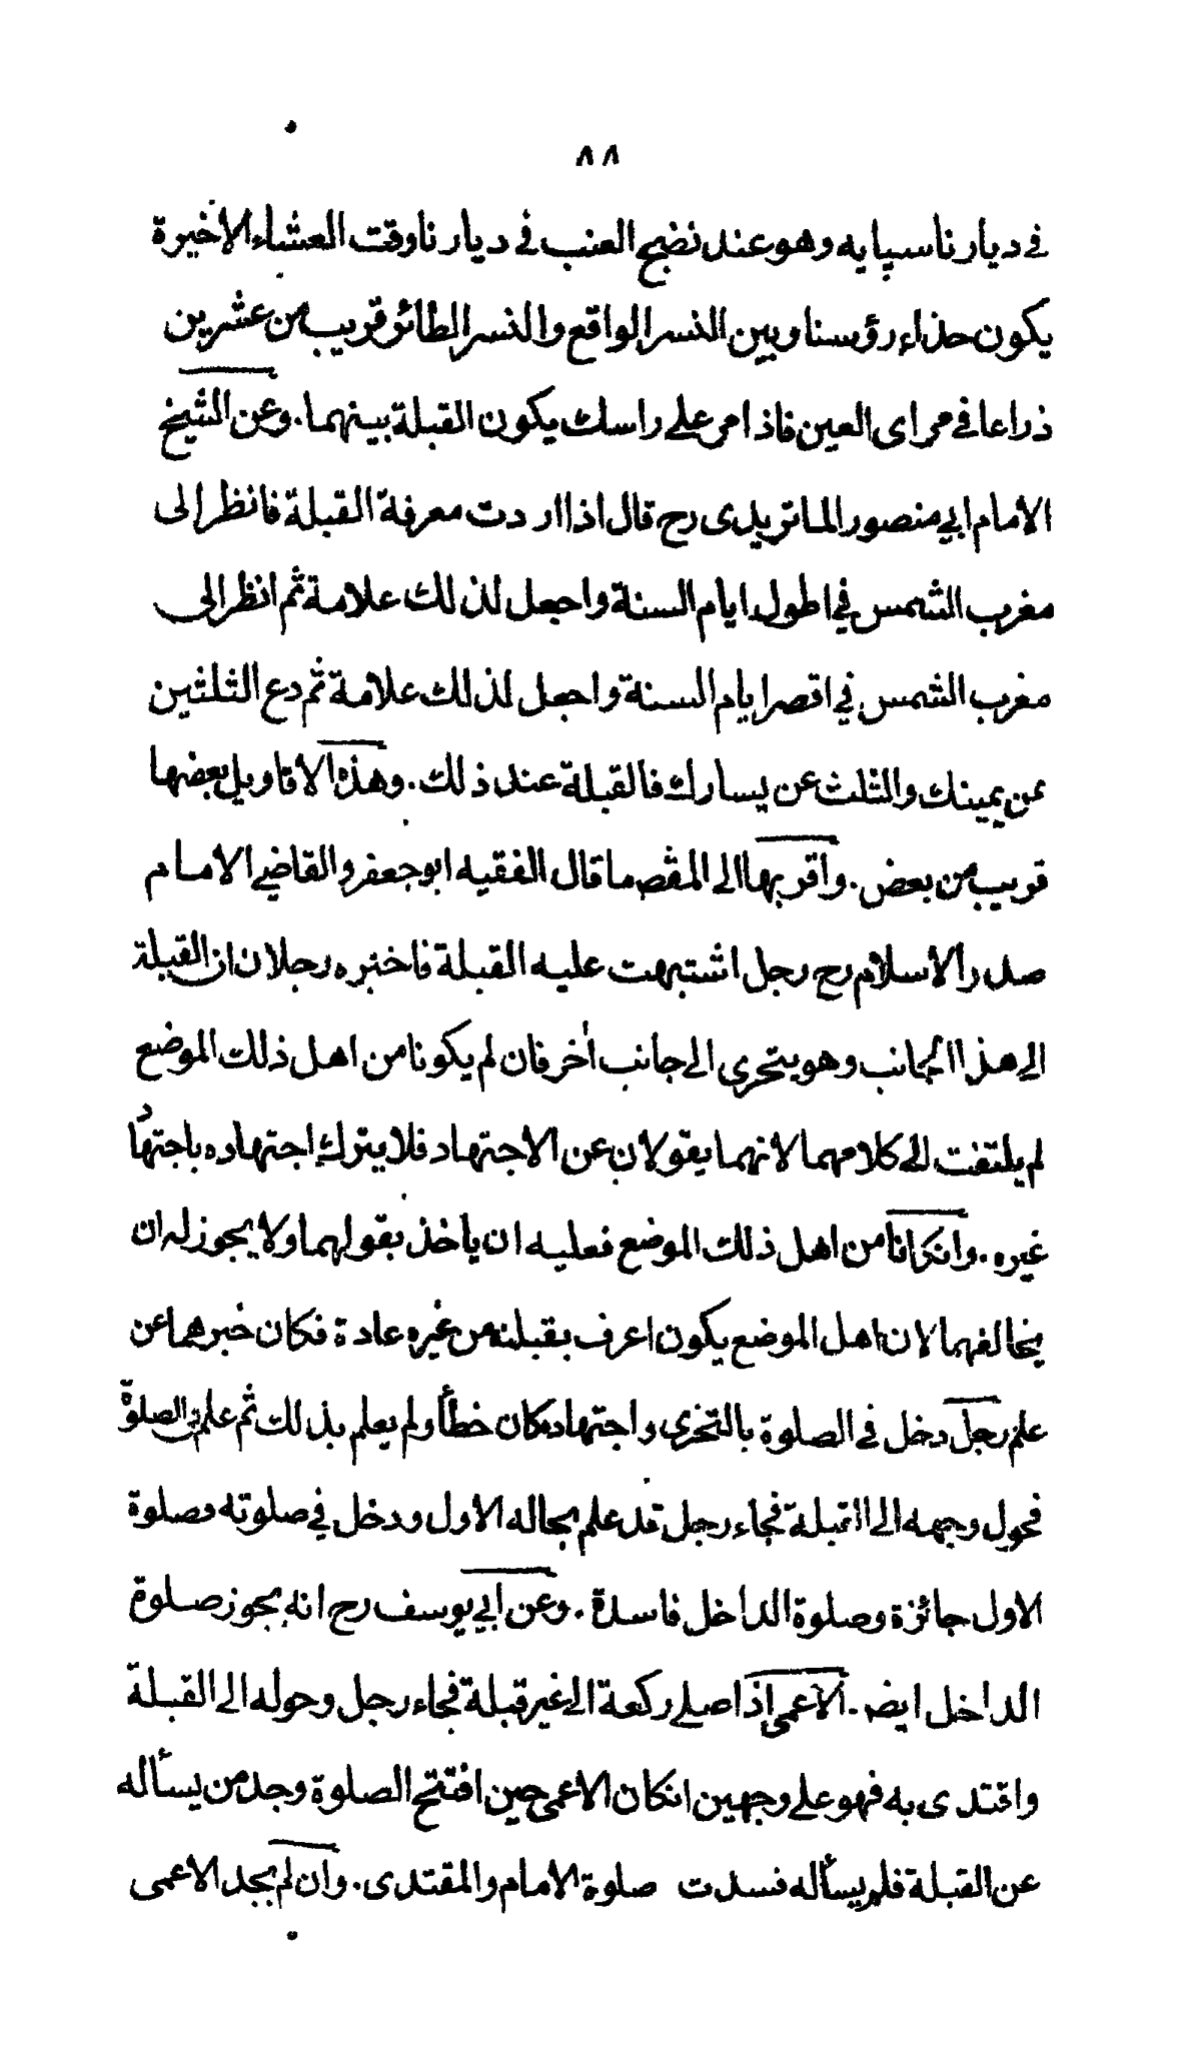 ٨٨
في ديارنا سپايه وهو عند نضج العنب في ديارنا وقت العشاء الاخيرة
يكون حذاء رؤسنا وبين النسر الواقع والنسر الطائر قريب من عشرين
ذراعا في مراى العين فاذا مر على راسك يكون القبلة بينهما. وعن الشيخ
الامام ابي منصور الماتريدى رح قال اذا اردت معرفة القبلة فانظر الى
مغرب الشمس في اطول ايام السنة واجعل لذلك علامة ثم انظر الى
مغرب الشمس في اقصر ايام السنة واجعل لذلك علامة ثم دع الثلثين
عن يمينك والثلث عن يسارك فالقبلة عند ذلك. وهذه الاقاويل بعضها
قريب من بعض. واقربها الى المقص ما قال الفقيه ابو جعفر والقاضي الامام
صدر الاسلام رح رجل اشتبهت عليه القبلة فاخبره رجلان ان القبلة
الى هذا الجانب وهو يتحرى الى جانب اٰخر فان لم يكونا من اهل ذلك الموضع
لم يلتفت الى كلامهما لانهما يقولان عن الاجتهاد فلا يترك اجتهاده باجتهاد
غيره. وانكانا من اهل ذلك الموضع فعليه ان ياخذ بقولهما ولا يجوز له ان
يخالفهما لان اهل الموضع يكون اعرف بقبلته من غيره عادة فكان خبرهما عن
علم رجل دخل في الصلوة بالتحرى واجتهاده كان خطأ ولم يعلم بذلك ثم علم في الصلوة
فحول وجهه الى القبلة فجاء رجل قد علم بحاله الاول ودخل في صلوته فصلوة
الاول جائزة وصلوة الداخل فاسدة. وعن ابي يوسف رح انه يجوز صلوة
الداخل ايضا. الاعمى اذا صلى ركعة الى غير قبلة فجاء رجل وحوله الى القبلة
واقتدى به فهو على وجهين انكان الاعمى حين افتتح الصلوة وجد من يسأله
عن القبلة فلم يسأله فسدت صلوة الامام والمقتدى. وان لم يجد الاعمى